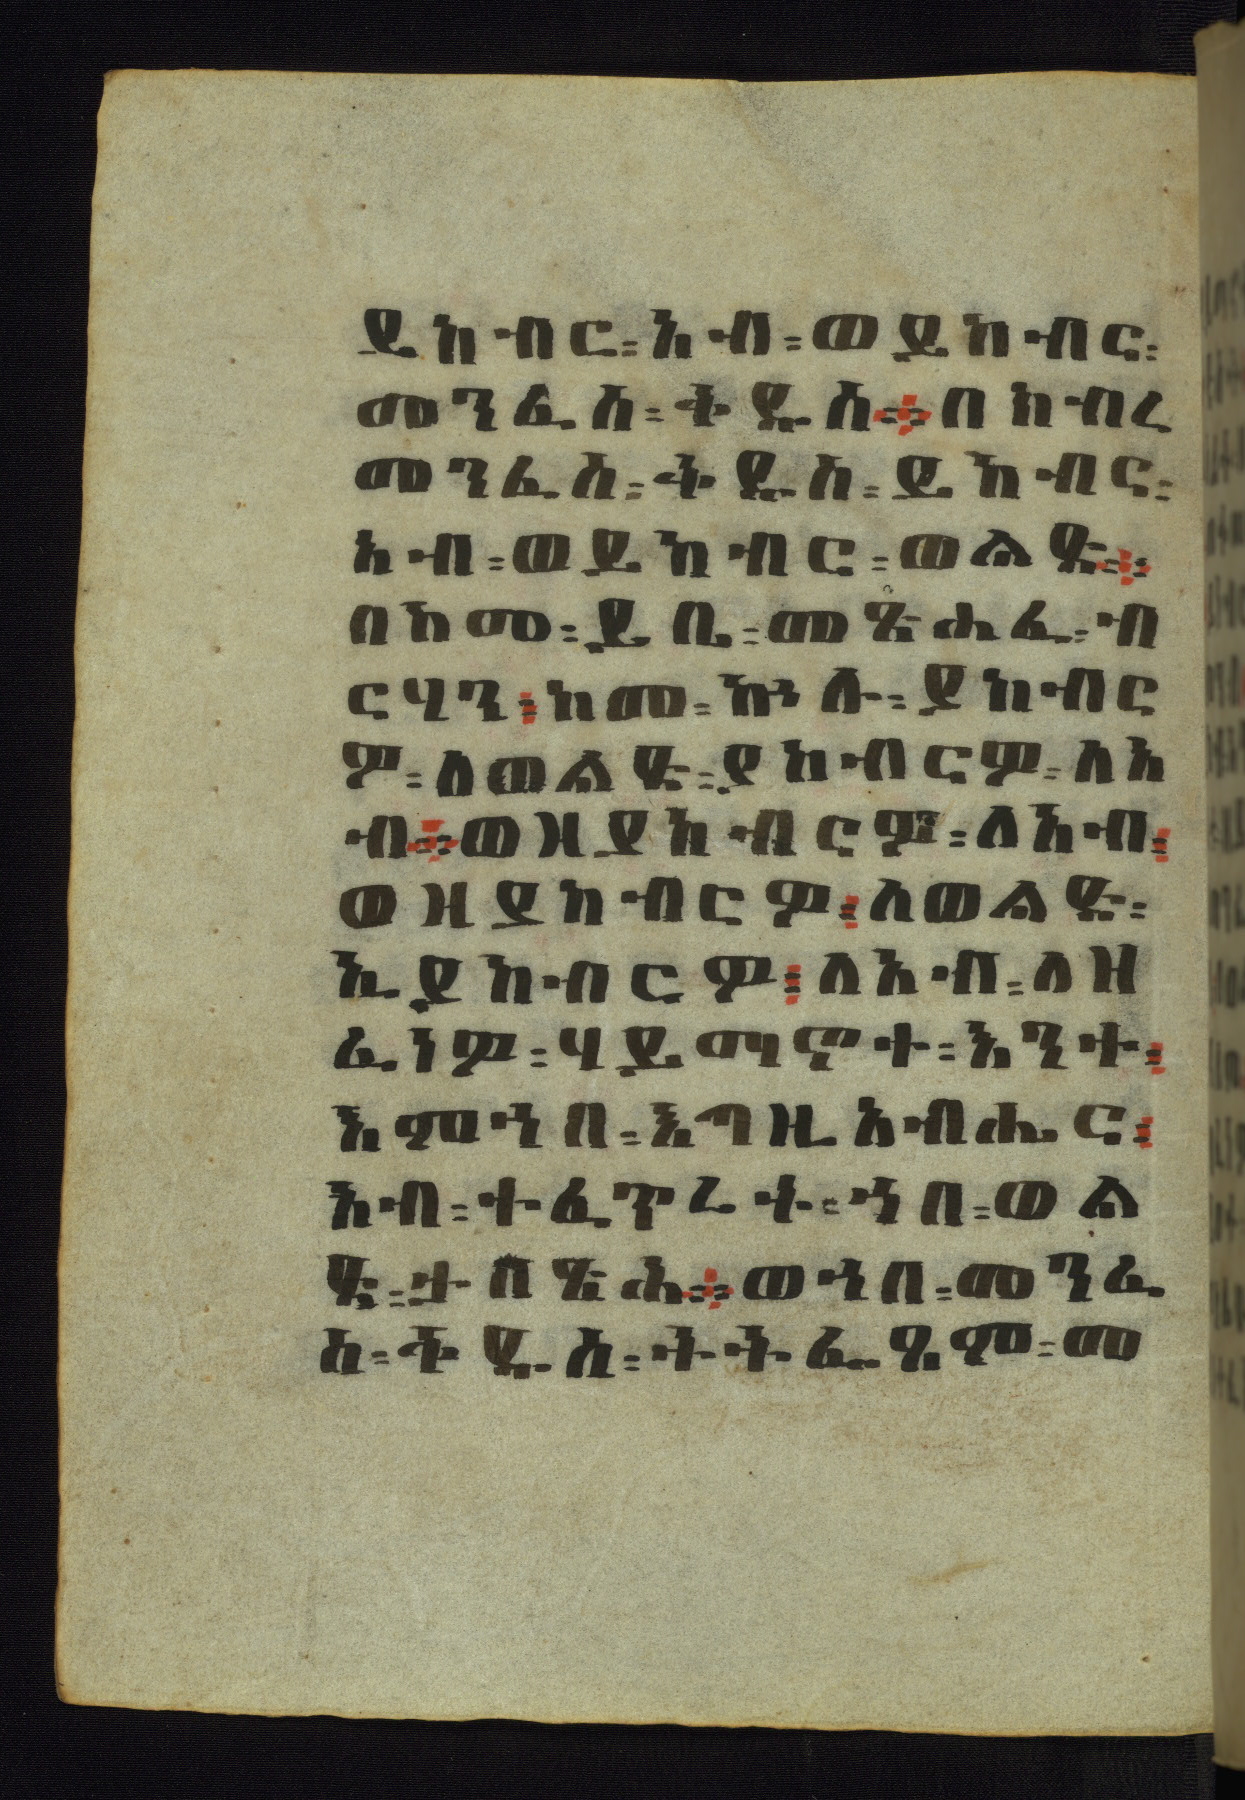 ይከብር፡አብ፡ወይከብር፡
መንፈስ፡ቅዱስ፡፡በከብረ
መንፈስ፡ቅዱስ፡ይከብር፡
አብ፡ወይከብር፡ወልድ፡፡
በከመ፡ይቤ፡መጽሐፈ፡ብ
ርሃን፡ከመ፡ኵሉ፡ያከብር
ም፡ለወልድ፡ያከብርም፡ለአ
ብ፡፡ወዘያከብርም፡ለአብ፡
ወዘያከብርም፡ለወልድ፡
ኢያከብርም፡ለአብ፡ለዘ
ፈነም፡ሃይማኖት፡እንተ፡
እምኀበ፡እግዚአብሔር፡
አብ፡ተፈጥረት፡ኀበ፡ወል
ድ፡ታበጽሕ፡፡ወኀበ፡መንፈ
ስ፡ቅዱስ፡ትትፌጸም፡መ